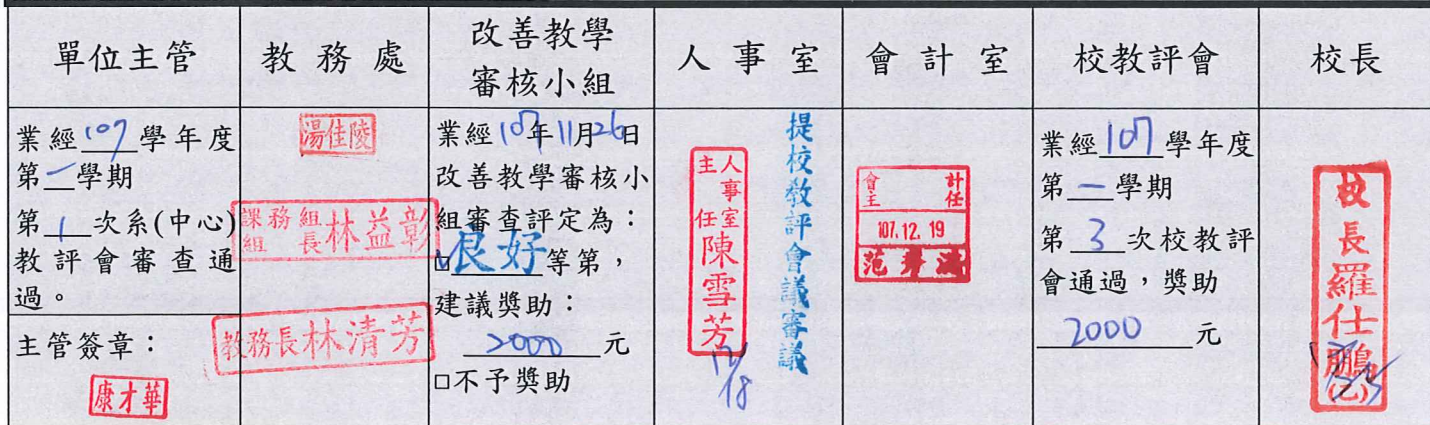 單位主管
教務處
改善教學
審核小組
人事室
會計室
校教評會
校長
業經107學年度
第一學期
第1次系(中心)
教評會審查通
過。
主管簽章：
康才華
湯佳陵
課務組
組長林益彰
教務長林清芳
業經107年11月26日
改善教學審核小
組審查評定為：
良好等第，
建議獎助：
2000元
□不予獎助
人事室
主任陳雪芳
12/18
提校教評會議審議
會計
主任
107.12.19
業經107學年度
第一學期
第3次校教評
會通過，獎助
2000元
校長羅仕鵬